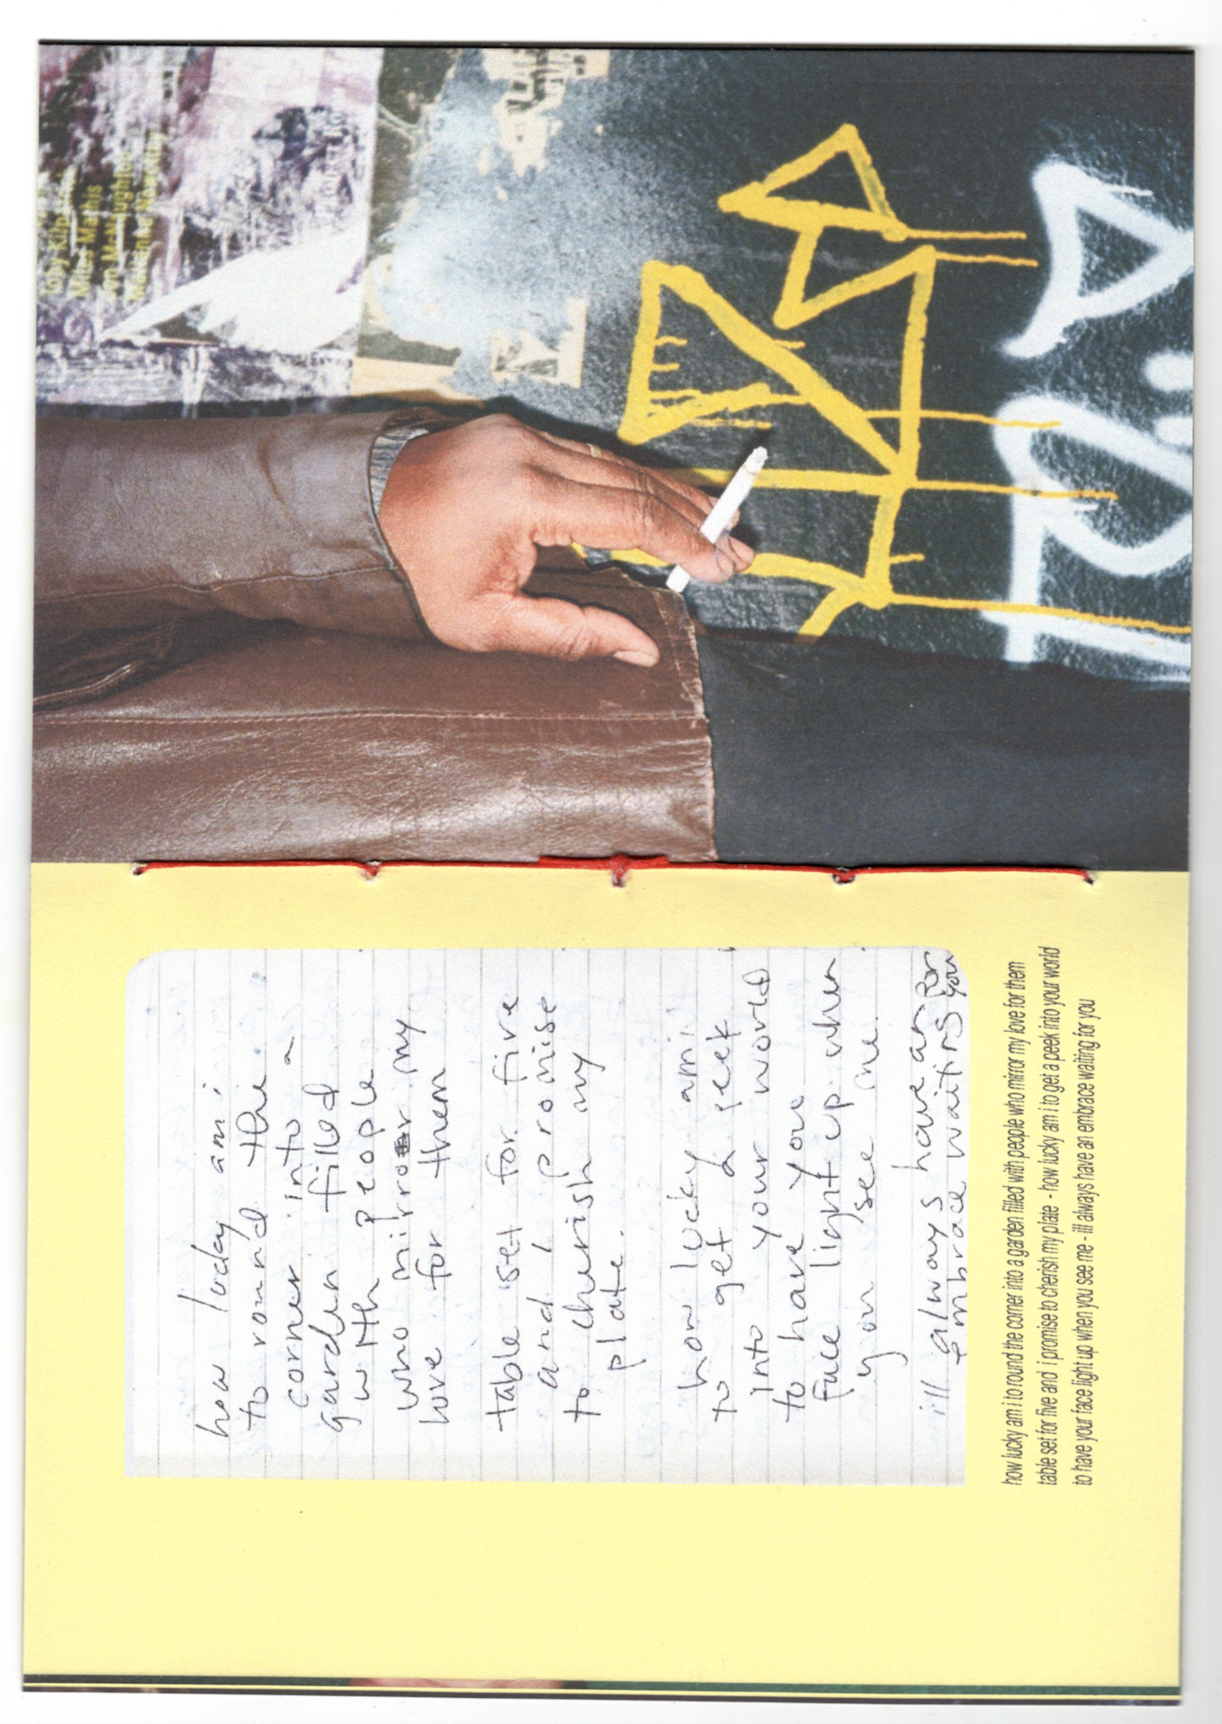 how lucky am i
to round the
corner into a
garden filled
with people
who mirror my
love for them
table set for five
and i promise
to cherish my
plate.
how lucky am i
to get a peek
into your world
to have your
face light up when
you see me.
ill always have an
embrace waiting for you
how lucky am i to round the corner into a garden filled with people who mirror my love for them
table set for five and i promise to cherish my plate - how lucky am i to get a peek into your world
to have your face light up when you see me - ill always have an embrace waiting for you
Toby
Miles Mathis